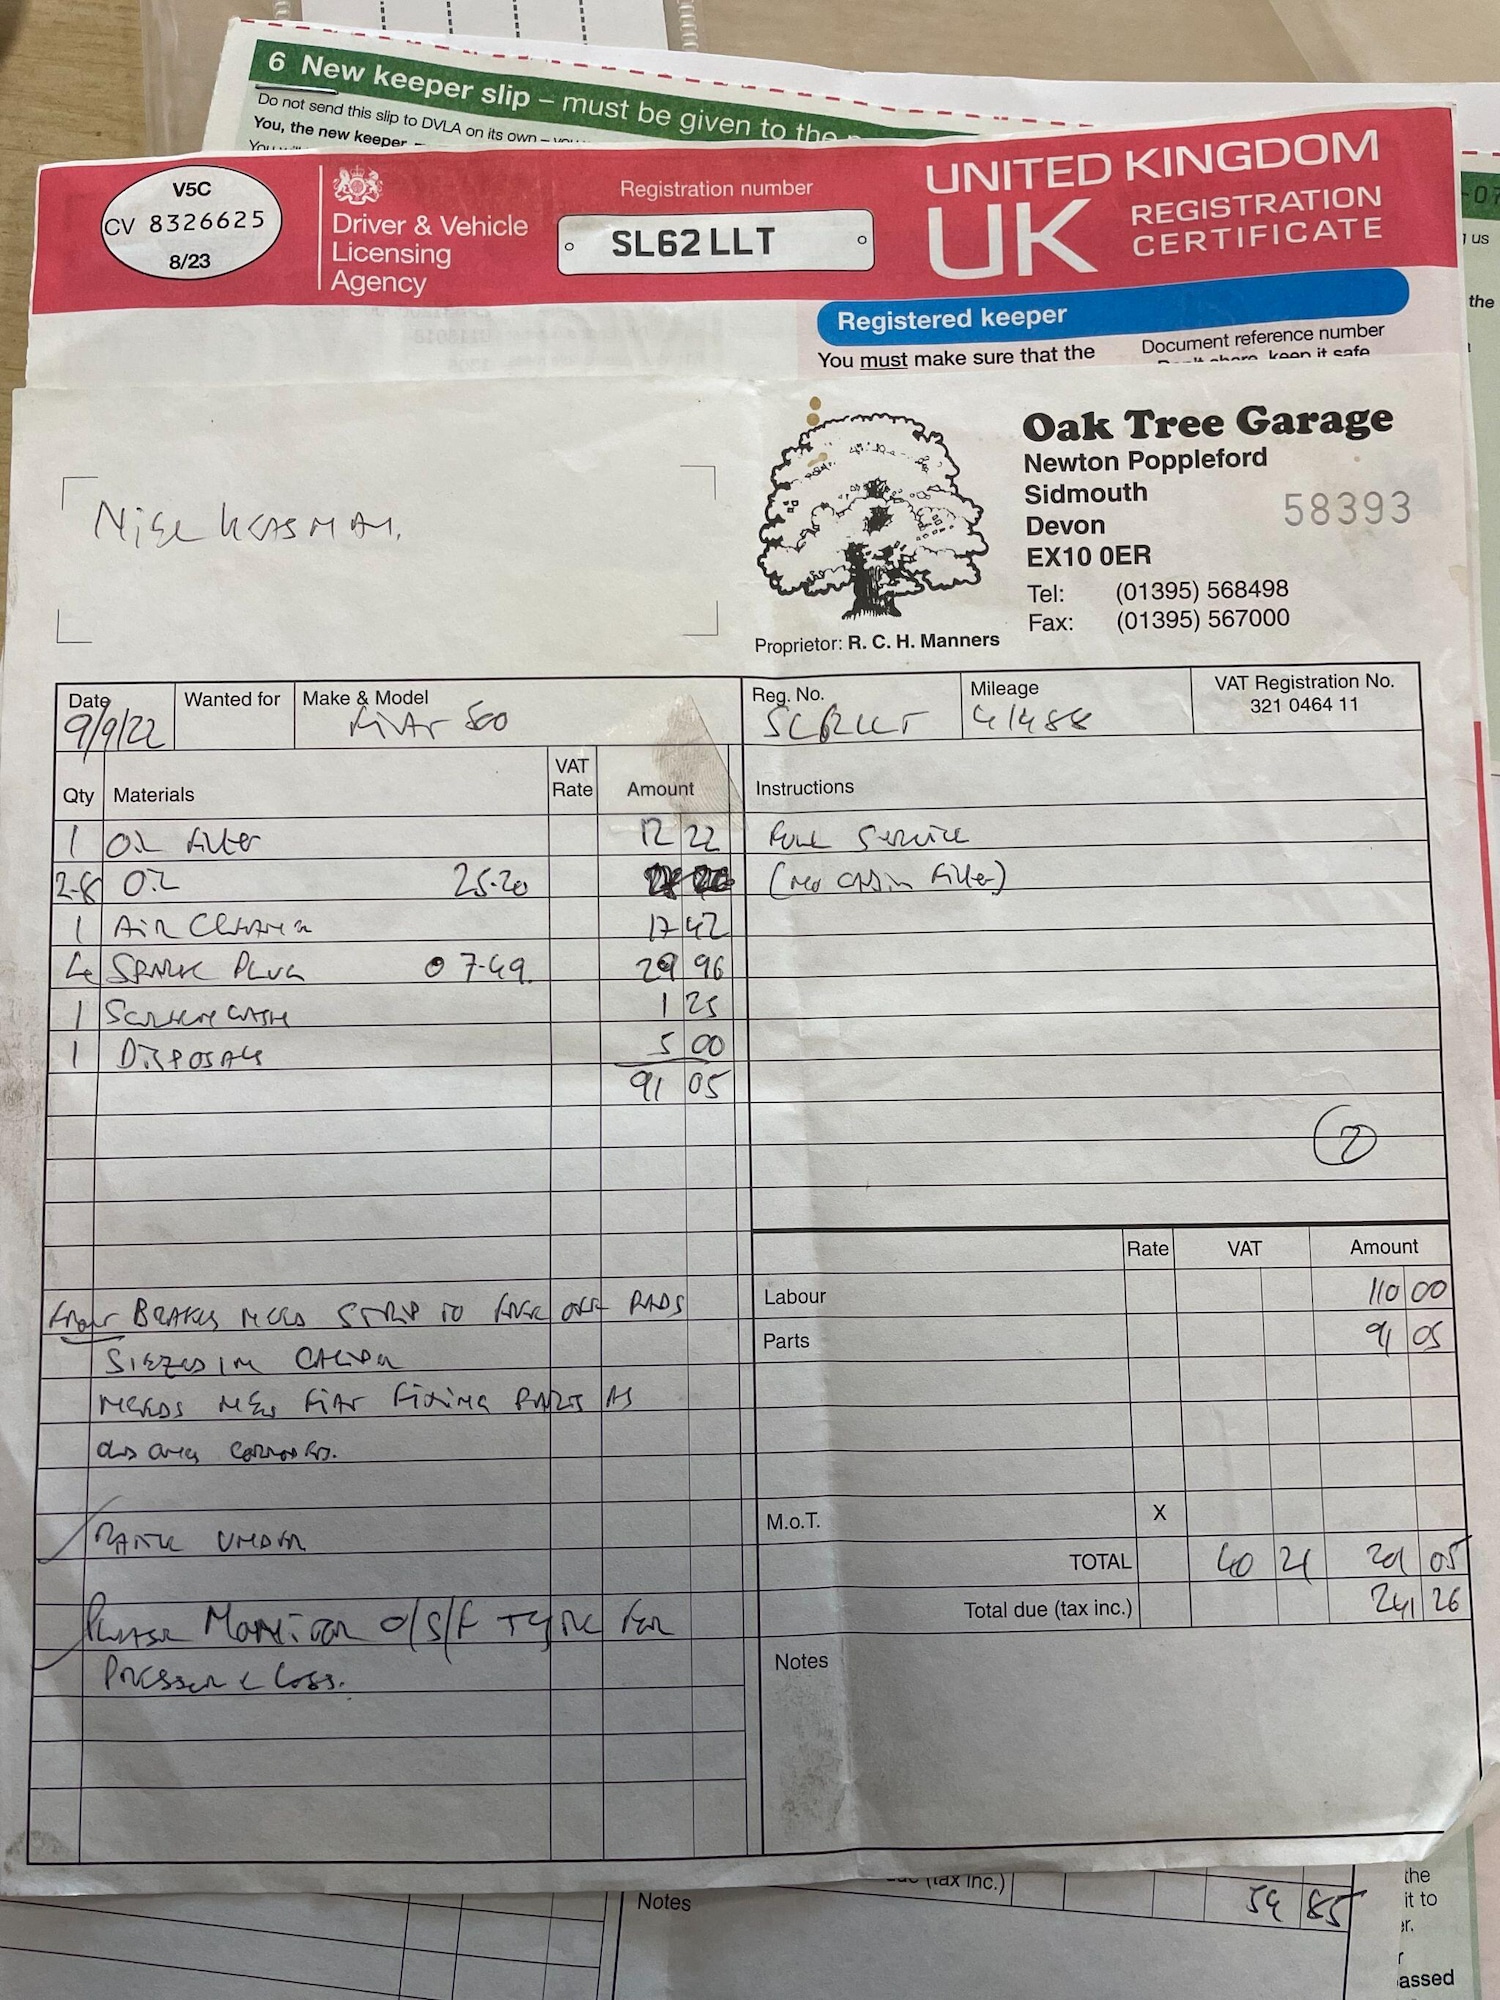 6 New keeper slip – must be given to the
Do not send this slip to DVLA on its own –
You, the new keeper
V5C
CV 8326625
8/23
Driver & Vehicle
Licensing
Agency
Registration number
SL62 LLT
UNITED KINGDOM
UK REGISTRATION
CERTIFICATE
Registered keeper
You must make sure that the
Document reference number
keep it safe
us
the
Oak Tree Garage
Newton Poppleford
Sidmouth
Devon
EX10 0ER
58393
Tel: (01395) 568498
Fax: (01395) 567000
Proprietor: R. C. H. Manners
Date
9/9/22
Wanted for
Make & Model
FIAT 500
Reg. No.
Mileage
41488
VAT Registration No.
321 0464 11
Qty Materials VAT Rate Amount Instructions
1 Oil filter 12 22 Full Service
2-8 Oil 25-20 (no cabin filter)
1 Air Cleaner 17 42
4 SPARK PLUG @ 7-49. 29 96
1 Screenwash 1 25
1 DISPOSALS 5 00
91 05
Rate VAT Amount
Labour 110 00
Parts 91 05
FRONT BRAKES NEED STRIP TO FREE OFF PADS
SIEZED IN CALIPER
NEEDS NEW FIAT FIXING PARTS AS
OLD ONES CORRODED.
M.o.T. X
UNDER
TOTAL 40 21 201 05
Total due (tax inc.) 241 26
PLEASE MONITOR O/S/F TYRE FOR
PRESSURE LOSS.
Notes
(tax inc.)
Notes
54 85
the
it to
er.
assed